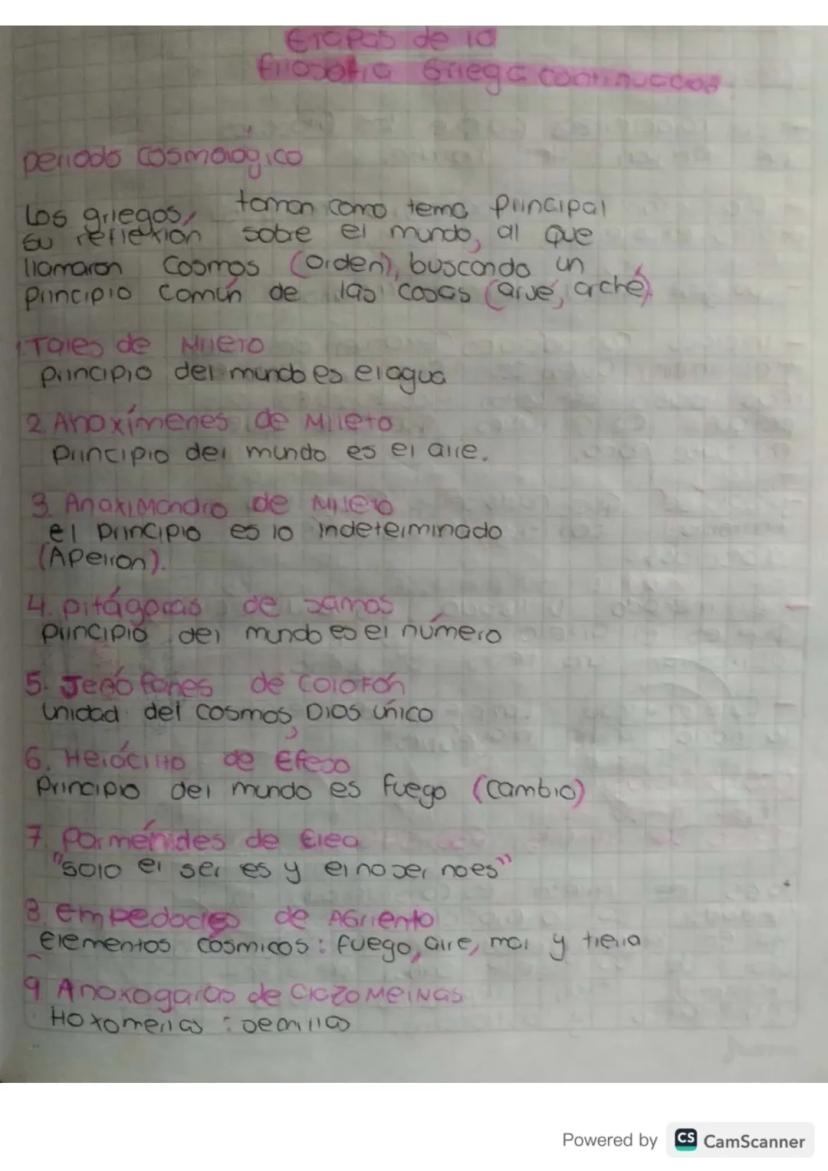 Etapas de la
filosofia Griega continuacion
periodo cosmologico
Los griegos, toman como tema principal
su reflexion sobre el mundo, al que
llamaron cosmos (orden), buscando un
principio común de las cosas (arje, arché)
1. Tales de Mileto
principio del mundo es el agua
2. Anaxímenes de Mileto
principio del mundo es el aire.
3. Anaximandro de Mileto
el principio es lo indeterminado
(Apeiron).
4. pitágoras de samos
principio del mundo es el número
5. Jenófanes de Colofón
unidad del cosmos, Dios único
6. Herácilto de Efeso
Principio del mundo es fuego (cambio)
7. Parménides de Elea
"solo el ser es y el no ser no es"
8. Empedocles de Agriento
elementos cósmicos: fuego, aire, mar y tierra
9 Anaxogaras de Clazomeinas
Hoxomerias: semillas
Powered by CS CamScanner